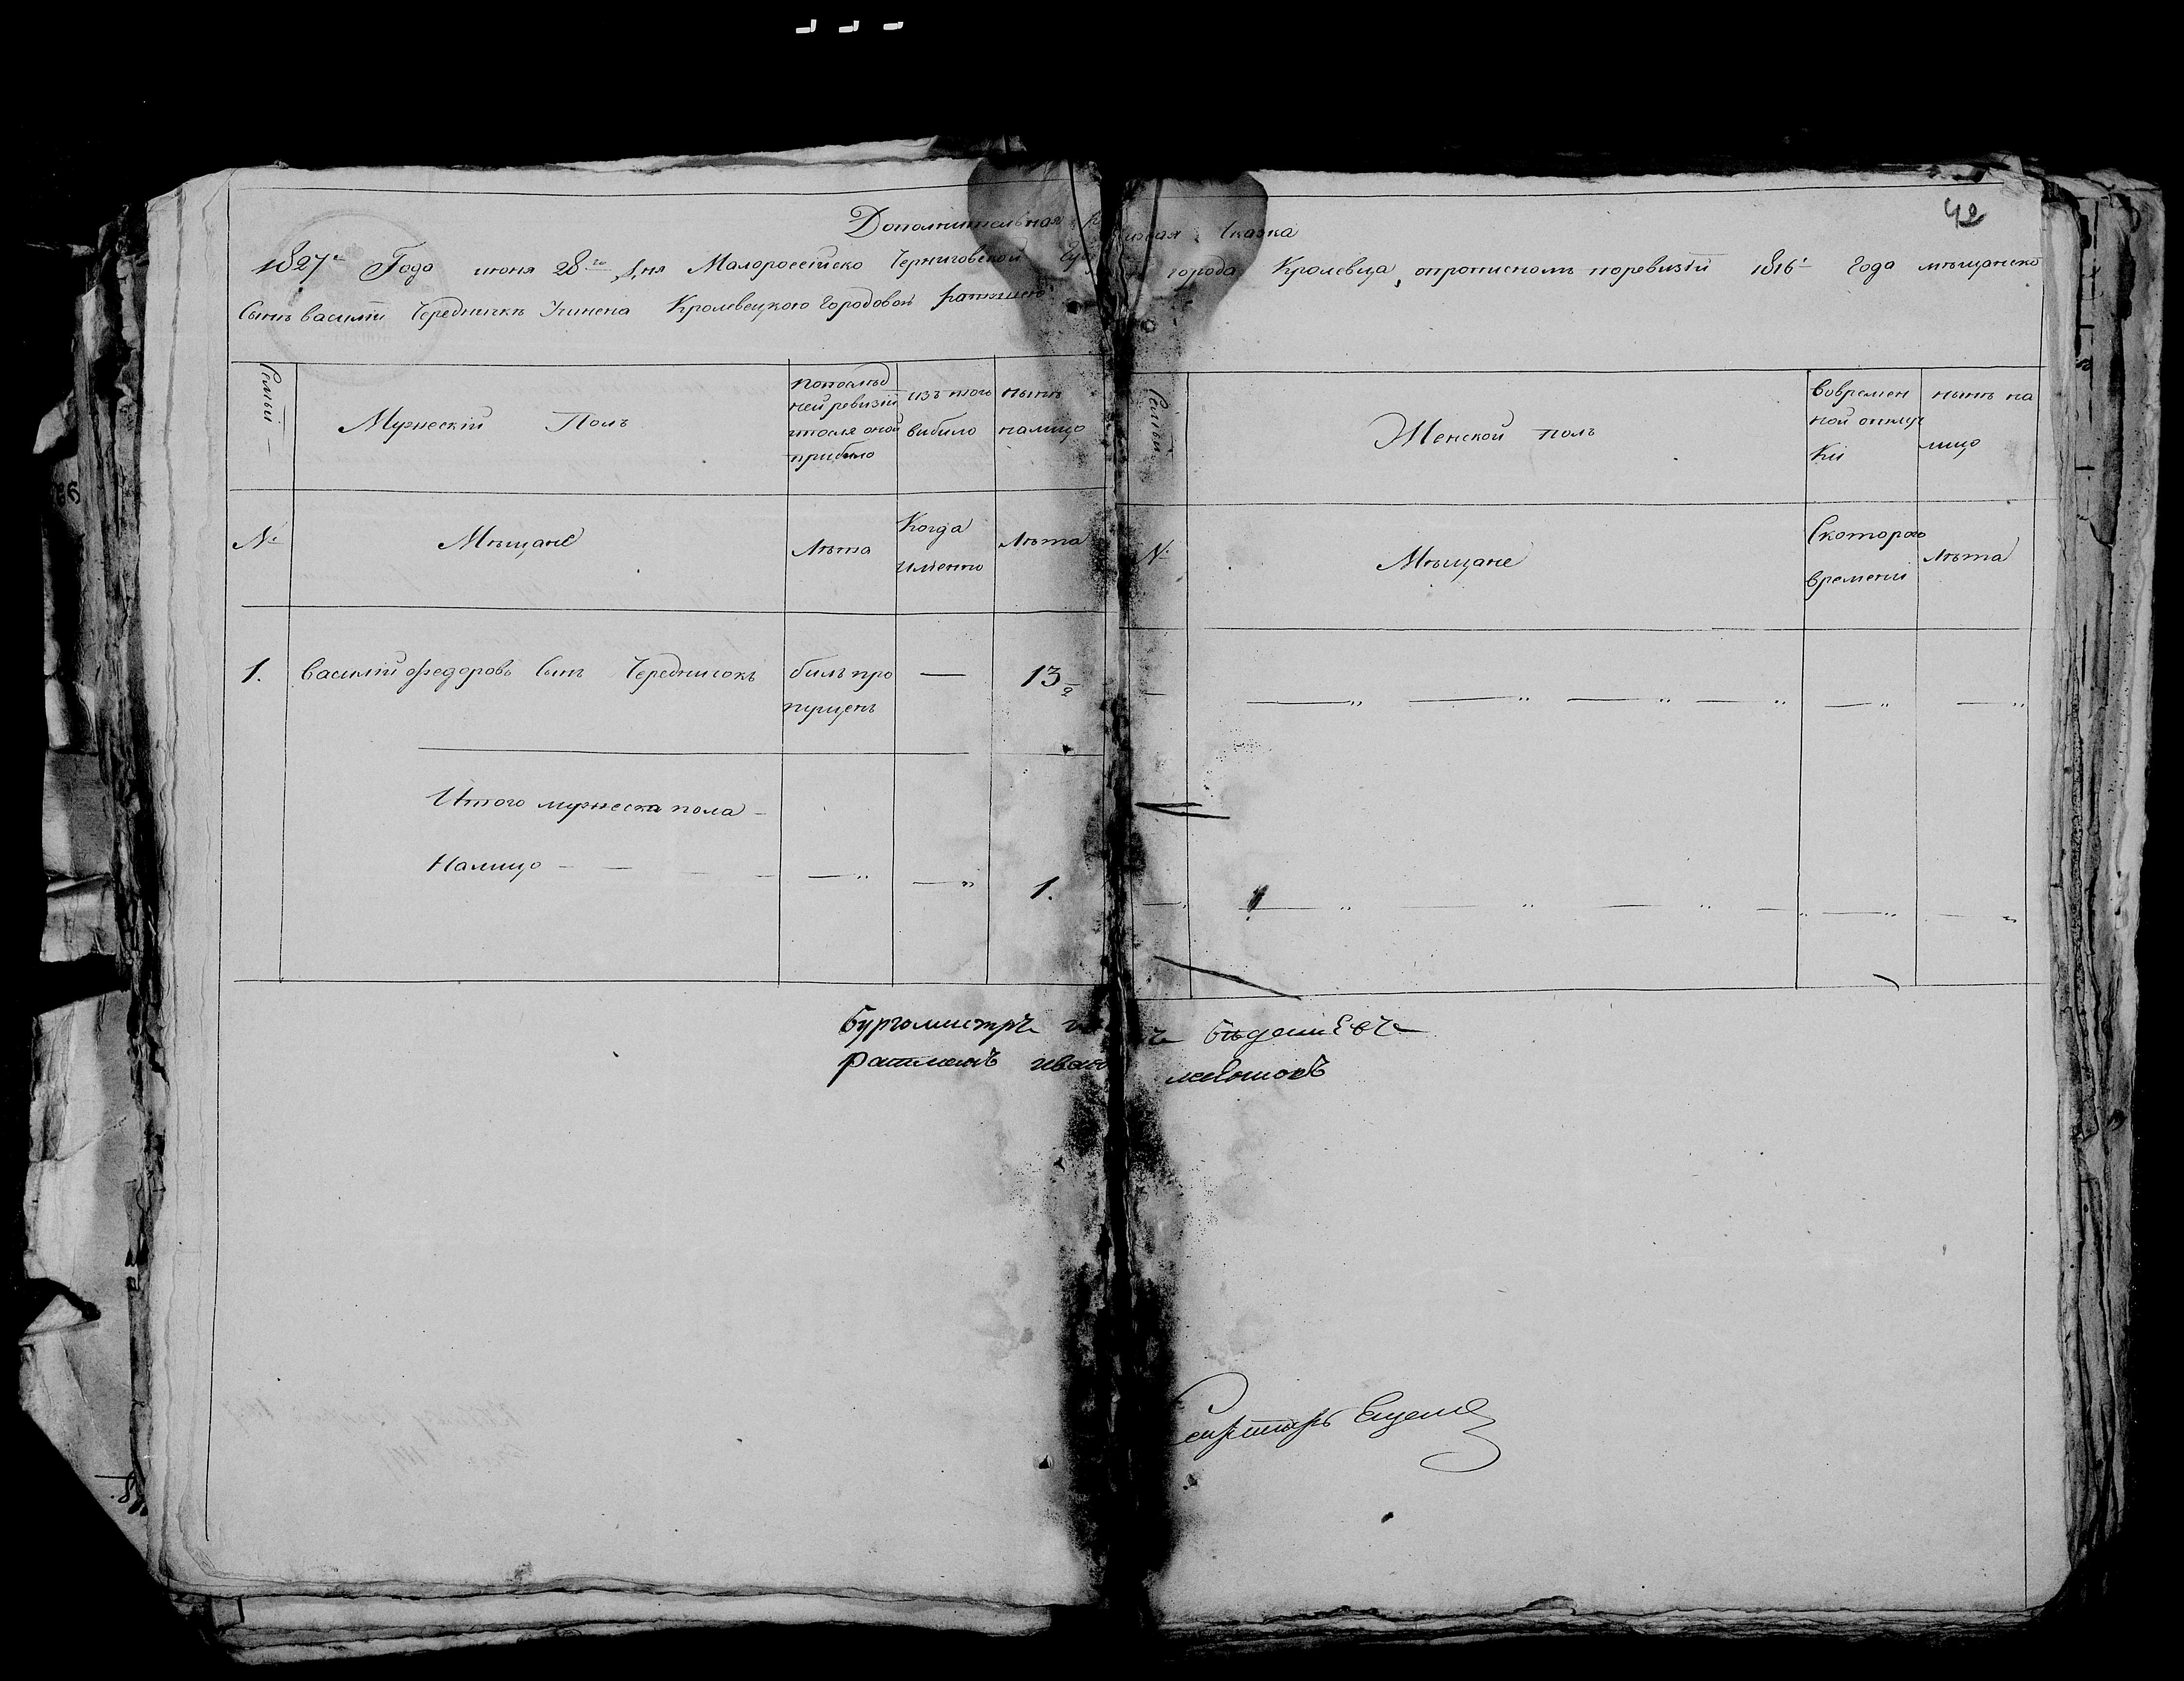 42
Дополнительная р изкая Сказка
1827 Года июня 28го дня Малоросейско Черниговской Губ города Кролевца, опрописномъ поревизіи 1816 года мѣщанско
Сынѣ василіи Чередничкѣ Учинена Кролевецкою городовою ратушею
Семьи
Мужескій Полъ
попослѣд
ней ревизіи
ипосля оной
прибило
изъ того
вибило
нынѣ
налицо
Семьи
Женской полъ
Вовремен
ной отлуч
ки
нынѣ на
лицо
№
Мѣщане
Лѣта
Когда
именно
Лѣта
№
Мѣщане
Скоторого
времени
Лѣта
1. Василій Федоровъ Сынъ Чередничокъ
билъ про
пущенъ
—
13 ½
Итого мужеска пола
Налицо — — — 1.
бургомистръ
ратманъ иван